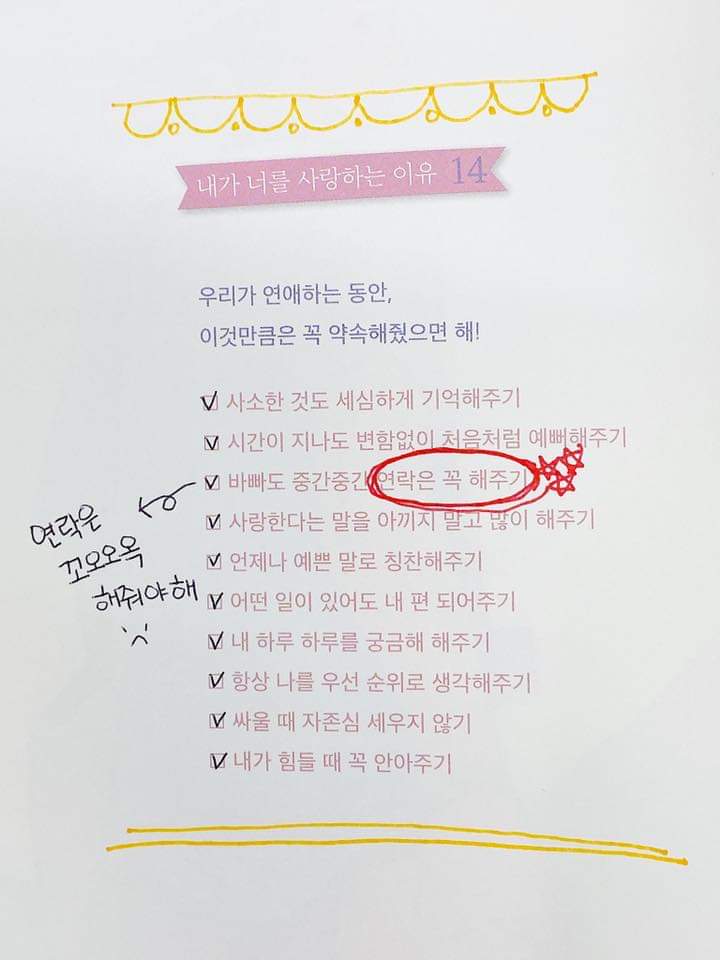 내가 너를 사랑하는 이유 14
우리가 연애하는 동안,
이것만큼은 꼭 약속해줬으면 해!
사소한 것도 세심하게 기억해주기
시간이 지나도 변함없이 처음처럼 예뻐해주기
바빠도 중간중간 연락은 꼭 해주기
사랑한다는 말을 아끼지 말고 많이 해주기
언제나 예쁜 말로 칭찬해주기
어떤 일이 있어도 내 편 되어주기
내 하루 하루를 궁금해 해주기
항상 나를 우선 순위로 생각해주기
싸울 때 자존심 세우지 않기
내가 힘들 때 꼭 안아주기
연락은
꼬오오옥
해줘야해